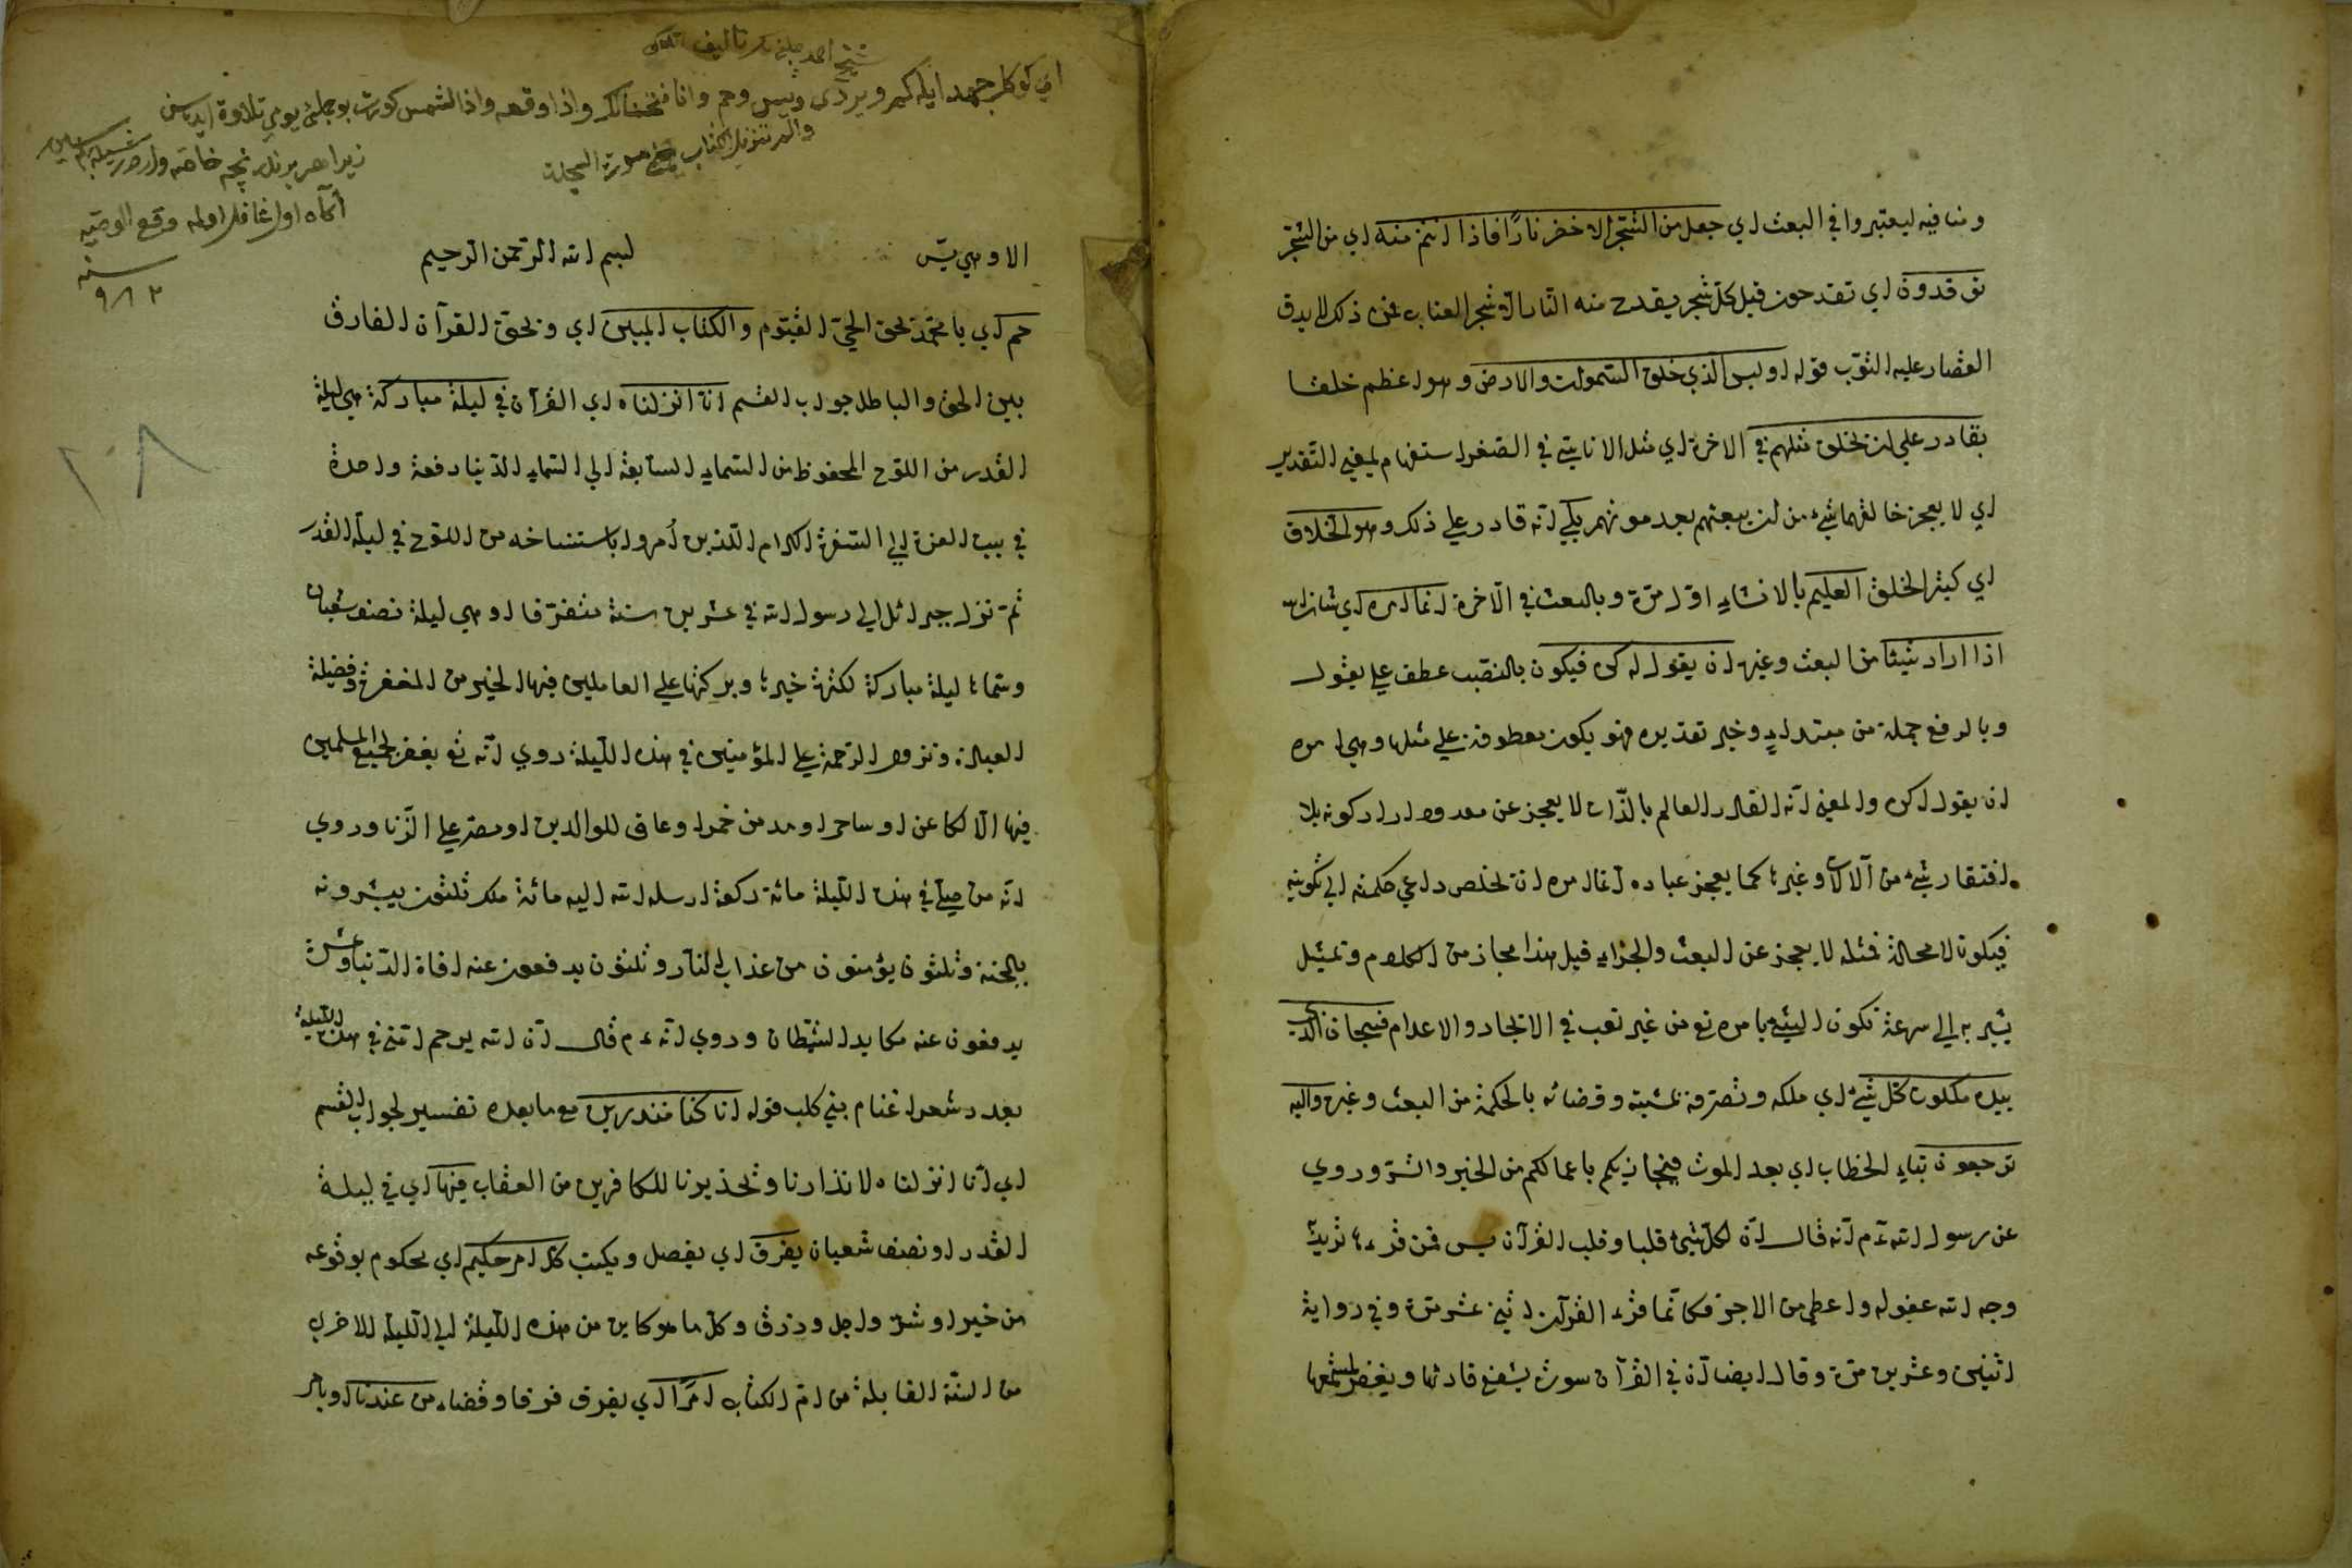 ومنافيه ليعتبروا في البعث اي جعل من الشجر الاخضر نارًا فاذا انتم منه اي من الشجر
توقدون اي تقدحون قيل كل شجر يقدح منه النار الا شجر العناب فمن ذلك لا يدق
القصار عليه الثوب قوله اوليس الذي خلق السموات والارض وهو اعظم خلقا
بقادر علي ان يخلق مثلهم في الاخرة اي مثل الاناسي في الصغر استفهام لمعني التقدير
اي لا يعجز خالقهما شيء من ان يبعثهم بعد موتهم بلي انه قادر علي ذلك وهو الخلاق
اي كثير الخلق العليم بالانشاء اول مرة وبالبعث في الآخرة انما امره اي شانه
اذا اراد شيئا من البعث وغيره ان يقول له كن فيكون بالنصب عطف علي يقول
وبالرفع جملة من مبتداء وخبر تقديره فهو يكون معطوفة علي مثلها وهي امره
ان يقول له كن والمعني انه القادر العالم بالذات لا يعجز عن معدوم اراد كونه بلا
افتقار شيء من آلات وغيرها كما يعجز عباده انما امره ان يخلص داعي حكمته الي تكوينه
فيكون لا محالة فمثله لا يعجز عن البعث والجزاء قيل هذا مجاز من الكلام وتمثيل
يشير به الي سرعة تكون الشيء بامره تع من غير تعب في الايجاد والاعدام فسبحان الذي
بيده ملكوت كل شيء اي ملكه وتصرفه بمشيته وقضائه بالحكمة من البعث وغيره واليه
ترجعون بتاء الخطاب اي بعد الموت فيجازيكم باعمالكم من الخير والشر وروي
عن رسول الله ءم انه قال ان لكل شيئ قلبا وقلب القرآن يس فمن قرءها يريد
وجه الله غفر له واعطي من الاجر فكانما قرء القرآن اثني عشر مرة وفي رواية
اثنين وعشرين مرة وقال ايضا ان في القرآن سورة يشفع قارئها ويغفر لمستمعها
شيخ احمد چلبي تاليف
اي كوكل جهد ايله كيرو يردي ويس وحم وانا فتحنا لك واذا وقعه واذا الشمس كورت بو جمله يومي تلاوة ايده سن
والم تنزيل الكتاب مع سورة السجدة
زيرا هر برنده نچه خاصه واردر
آگاه اول غافل اولمه وقع الوصيه
سنه
٩٨٢
١٠٨
الاوهي يس
بسم الله الرحمن الرحيم
حم اي يا محمد بحق الحي القيوم والكتاب المبين اي وبحق القرآن الفارق
بين الحق والباطل جواب القسم انا انزلناه اي القرآن في ليلة مباركة هي ليلة
القدر من اللوح المحفوظ من السماء السابعة الي السماء الدنيا دفعة واحدة
في بيت العزة الي السفرة الكرام الذين أمروا باستنساخه من اللوح في ليلة القدر
ثم نزل جبرائل الي رسول الله في عشرين سنة متفرقا او هي ليلة نصف شعبان
وسماها ليلة مباركة لكثرة خيرها وبركتها علي العاملين فيها الخير من المغفرة وفضيلة
العبادة ونزول الرحمة علي المؤمنين في هذه الليلة روي انه تع يغفر لجميع المسلمين
فيها الا لكاهن او ساحر او مدمن خمر او عاق للوالدين او مصر علي الزنا وروي
انه من صلي في هذه الليلة مائة ركعة ارسل الله اليه مائة ملك ثلثون يبشرونه
بالجنة وثلثون يؤمنون من عذاب النار وثلثون يدفعون عنه افاة الدنيا وعشرة
يدفعون عنه مكايد الشيطان وروي انه ءم قال ان الله يرحم امتي في هذه الليلة
بعدد شعر اغنام بني كلب قوله انا كنا منذرين مع ما بعده تفسير لجواب القسم
اي انا انزلناه لانذارنا وتحذيرنا للكافرين من العقاب فيها اي في ليلة
القدر او نصف شعبان يفرق اي يفصل ويكتب كل امر حكيم اي محكوم بوقوعه
من خير او شر واجل ورزق وكل ما هو كاين من هذه الليلة الي الليلة الاخري
من السنة القابلة من ام الكتاب امرًا اي يفرق فرقا وقضاء من عندنا او بامر